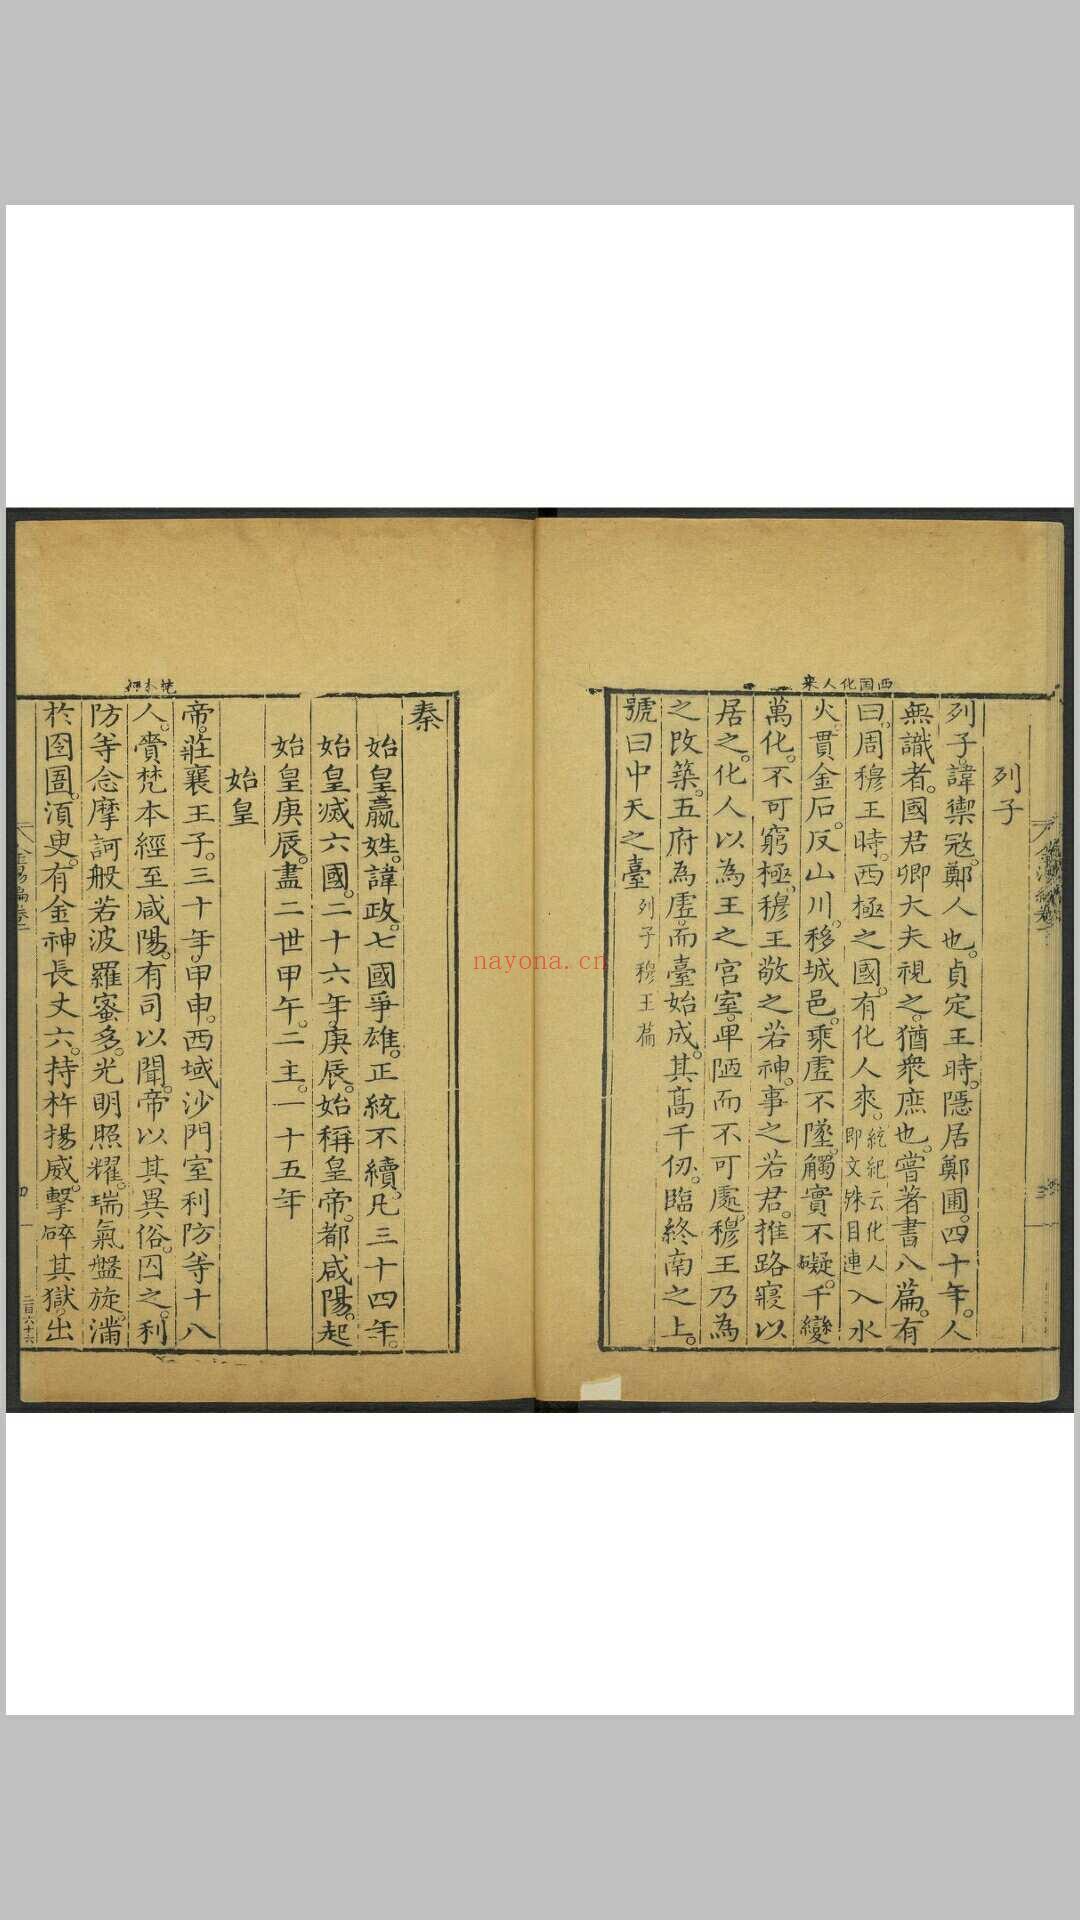 西国化人来
列子
列子諱禦宼鄭人也貞定王時隱居鄭圃四十年人
無識者國君卿大夫視之猶衆庶也嘗著書八篇有
曰周穆王時西極之國有化人來統紀云化人即文殊目連入水
火貫金石反山川移城邑乘虛不墜觸實不礙千變
萬化不可窮極穆王敬之若神事之若君推路寢以
居之化人以為王之宫室卑陋而不可處穆王乃為
之改築五府為虛而臺始成其髙千仭臨終南之上
號曰中天之臺列子穆王篇
秦
始皇嬴姓諱政七國爭雄正統不續凡三十四年
始皇滅六國二十六年庚辰始稱皇帝都咸陽起
始皇庚辰盡二世甲午二主一十五年
始皇
梵本經
帝莊襄王子三十年甲申西域沙門室利防等十八
人賫梵本經至咸陽有司以聞帝以其異俗囚之利
防等念摩訶般若波羅蜜多光明照耀瑞氣盤旋滿
於囹圄湏臾有金神長丈六持杵揚威擊碎其獄出
二百六十六
nayona.cn